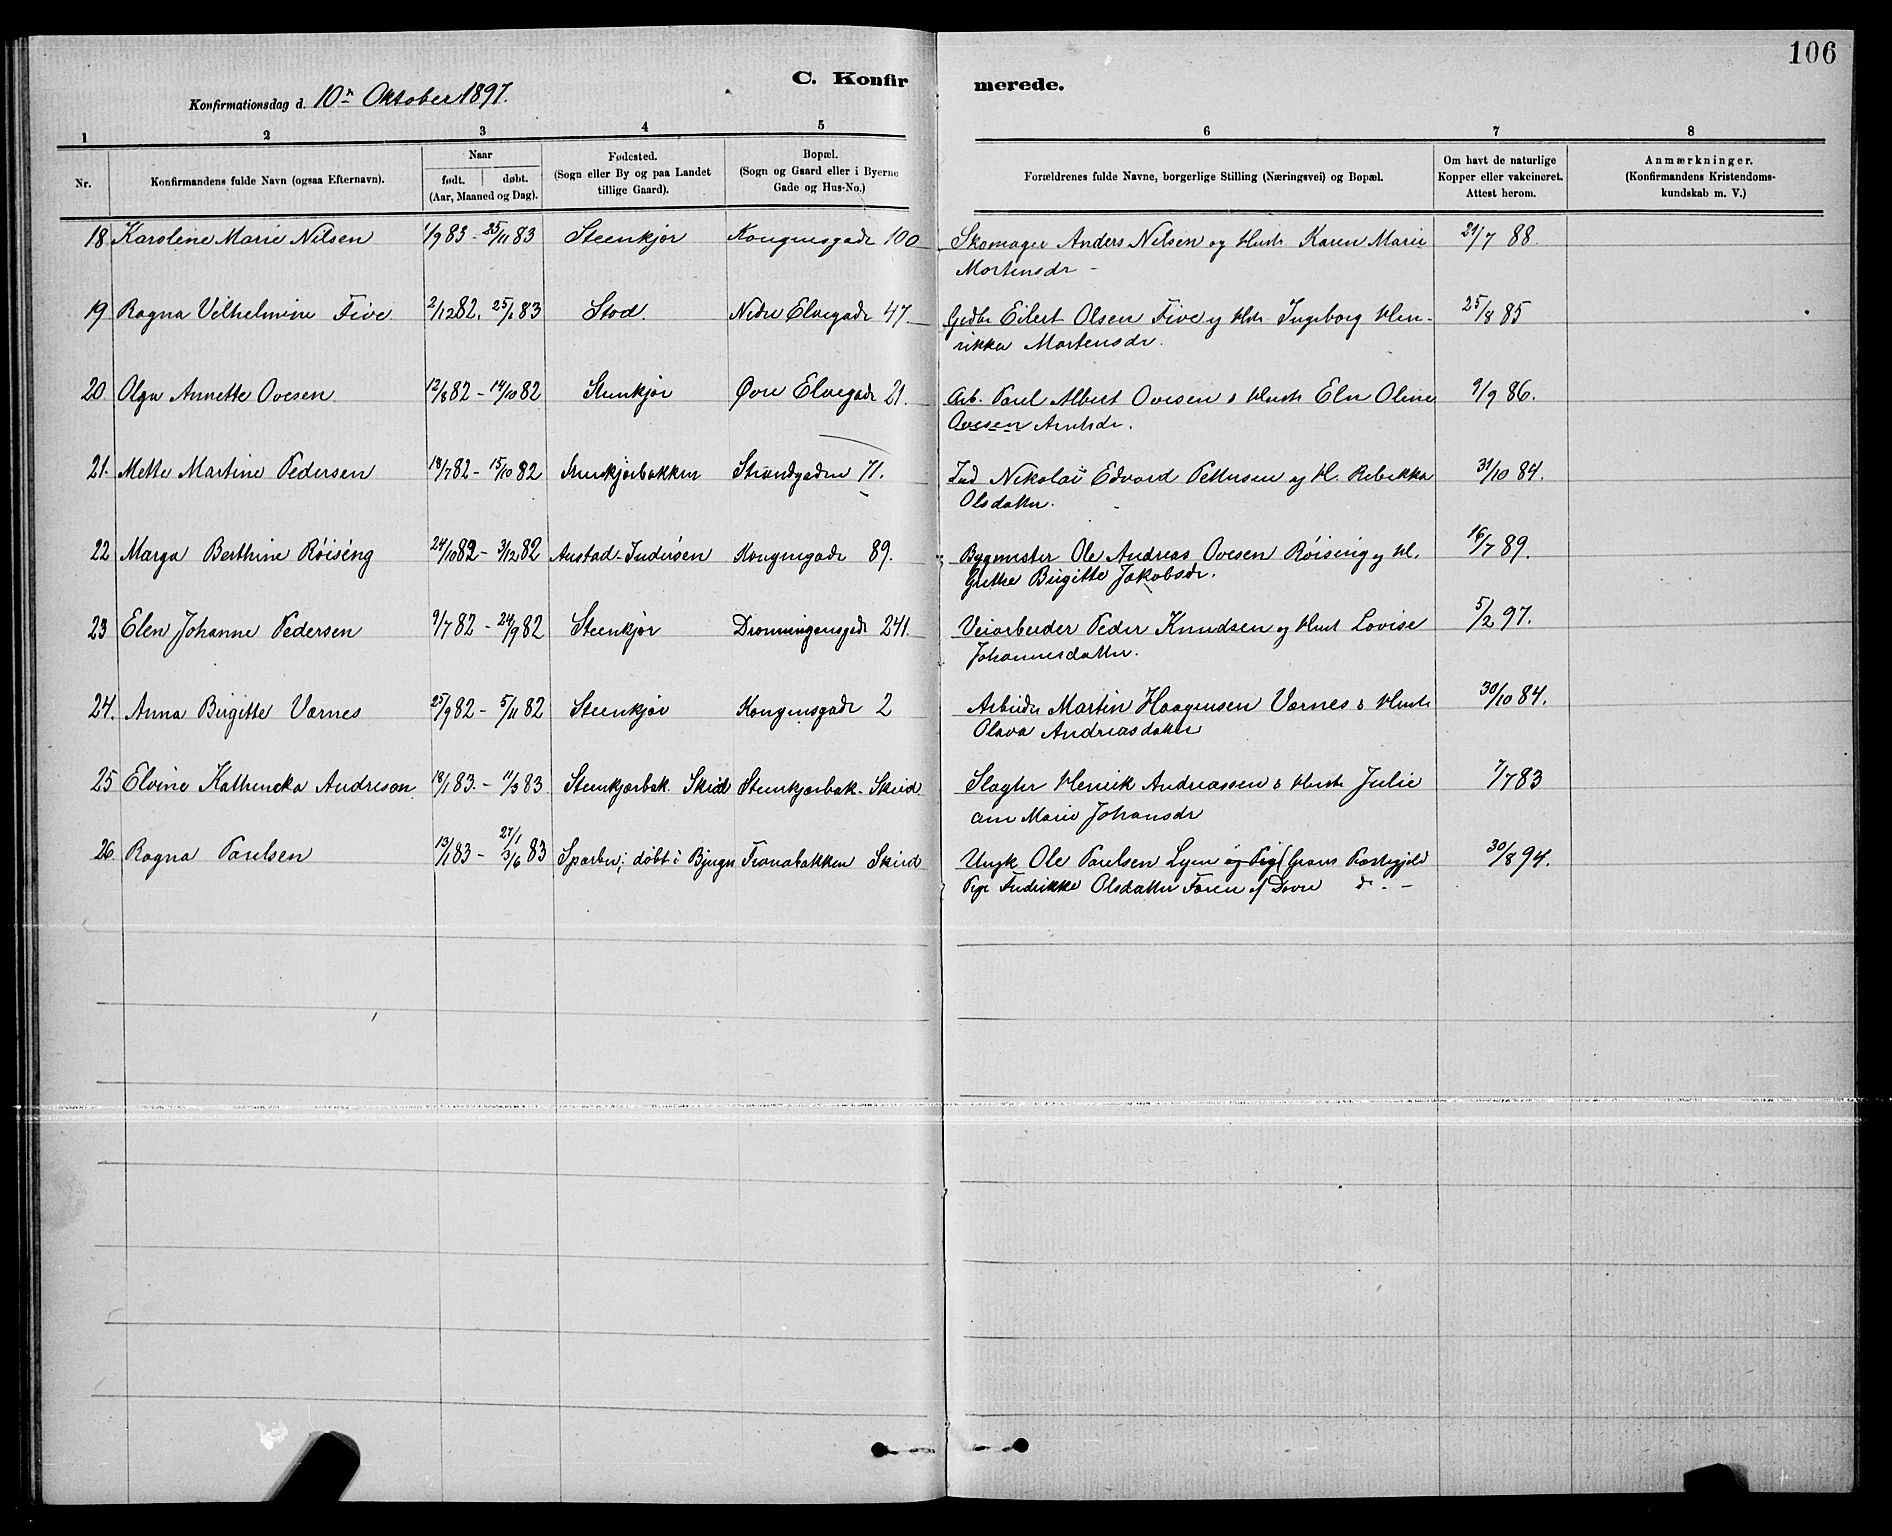 106
C. Konfir merede.
Konfirmationsdag d. 10n Oktober 1897.
1 2 3 4 5 6 7 8
Nr.
Konfirmandens fulde Navn (ogsaa Efternavn).
Naar
født. døbt.
(Aar, Maaned og Dag).
Fødested.
(Sogn eller By og paa Landet
tillige Gaard).
Bopæl.
(Sogn og Gaard eller i Byerne
Gade og Hus-No.)
Forældrenes fulde Navne, borgerlige Stilling (Næringsvei) og Bopæl.
Om havt de naturlige
Kopper eller vakcineret.
Attest herom.
Anmærkninger.
(Konfirmandens Kristendoms-
kundskab m. V.)
18 Karoline Marie Nilsen 1/9 83 - 25/11 83 Steenkjør Kongensgade 100 Skomager Anders Nilsen og Hust Karen Marie 21/7 88.
Mortensdr -
19 Ragna Vilhelmine Five 2/12 82. 25/1 83 Stod. Nedre Elvegade 47. Gdbr Eilert Olsen Five og Hst Ingeborg Hen- 25/8 85
rikka Mortensdr.
20 Olga Annette Ovesen 12/8 82 - 14/10 82 Steenkjør Øvre Elvegade 21. Arb. Paul Albert Ovesen & Hust Eln Oline 9/9 86.
Ovesen Arntsdr.
21. Mette Martine Pedersen 18/7 82 - 15/10 82 Steenkjørbakken Strandgaden 71. Ind Nikolai Edvard Pettersen og H. Rebekka 31/10 84.
Olsdatter.
22 Marga Berthine Røising 24/10 82 - 3/12 82 Austad-Inderøen Kongensgade 89. Bygmester Ole Andreas Ovesen Røising og H. 16/7 89.
Grethe Birgitte Jakobsdr.
23 Elen Johanne Pedersen 9/7 82 - 24/9 82 Steenkjør Dronningensgade 241. Veiarbeider Peder Knudsen og Hust Lovise 5/2 97.
Johannesdatter.
24. Anna Birgitte Værnes 25/9 82 - 5/11 82 Steenkjør Kongensgade 2 Arbeider Martin Haagensen Værnes & Hust 30/10 84.
Olava Andreasdatter
25 Elvine Kathincka Andresen 18/1 83. - 11/3 83 Steenkjærbak. Skeid Steenkjærbak. Skeid Slagter Henrik Andreassen & Hust Julie 7/7 83
ane Marie Johansdr
26. Ragna Paulsen 13/1 83 - 27/1 3/6 83 Sparbu; døbt i Bjugn Tranabakken Skeid Ungk Ole Paulsen Lyen Grans Præstegjeld 30/8 94.
Pige Fredrikke Olsdatter Foren af Dovre do. -